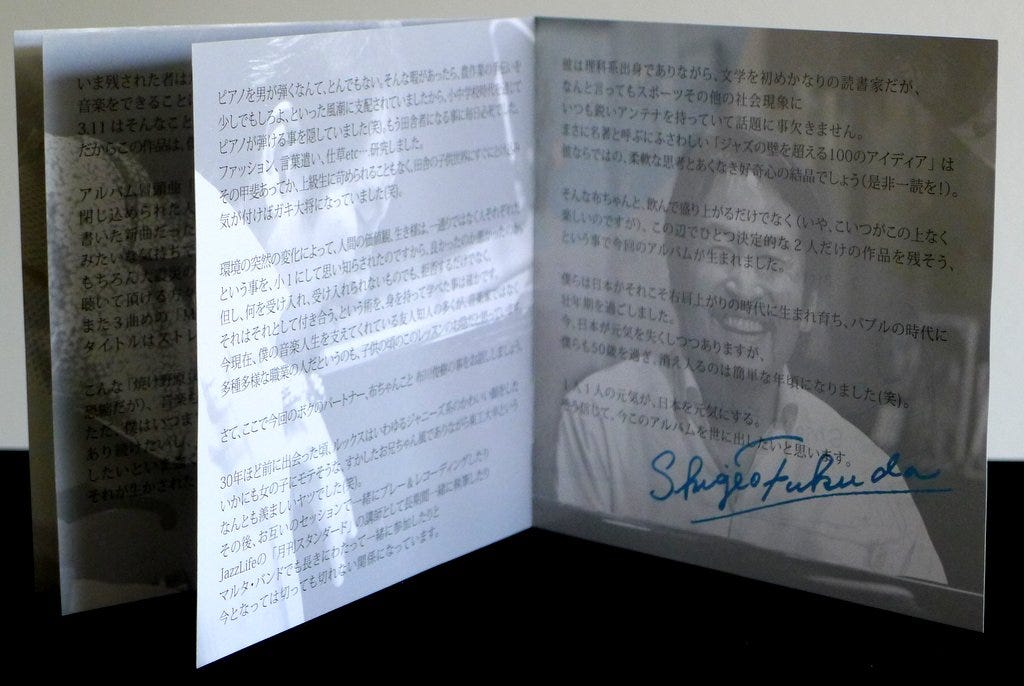 いま残された者は
音楽をできること
3.11 はそんなこと
だからこの作品は、
アルバム冒頭曲「
閉じ込められた人
書いた新曲だった
みたいな気持ちで
もちろん大震災の
聴いて頂ける方が
また3曲めの、「M
タイトルはストレ
こんな「焼け野原
恐縮だが)、音楽も
ただ、僕はいつま
あり続けたいし、
したいといま
それが生かされた
ピアノを男が弾くなんて、とんでもない。そんな暇があったら、農作業の手伝いを
少しでもしろよ、といった風潮に支配されていましたから、小中学校時代を通じて
ピアノが弾ける事を隠していました(笑)。もう田舎者になる事に毎日必死でした。
ファッション、言葉遣い、仕草etc…研究しました。
その甲斐あってか、上級生に苛められることもなく、田舎の子供世界にすぐにとけ込み
気が付けばガキ大将になっていました(笑)。
環境の突然の変化によって、人間の価値観、生き様は、一通りではなく人それぞれだ
という事を、小1にして思い知らされたのですから、良かったのか悪かったのか。
但し、何を受け入れ、受け入れられないものでも、拒否するだけでなく、
それはそれとして付き合う、という術を、身を持って学べた事は確かです。
今現在、僕の音楽人生を支えてくれている友人知人の多くが、音楽家ではなく
多種多様な職業の人だというのも、子供の頃のこのレッスンのお陰だと思っています。
さて、ここで今回のボクのパートナー、布ちゃんこと 布川俊樹の事をお話しましょう。
30年ほど前に出会った頃、ルックスはいわゆるジャニーズ系のかわいい顔をした
いかにも女の子にモテそうな、すかしたお兄ちゃん風でありながら東工大卒という
なんとも羨ましいヤツでした(笑)。
その後、お互いのセッションで一緒にプレー&レコーディングしたり
JazzLifeの「月刊スタンダード」の講師として長期間一緒に執筆したり
マルタ・バンドでも長きにわたって一緒に参加したりと
今となっては切っても切れない関係になっています。
彼は理科系出身でありながら、文学を初めかなりの読書家だが、
なんと言ってもスポーツその他の社会現象に
いつも鋭いアンテナを持っていて話題に事欠きません。
まさに名著と呼ぶにふさわしい「ジャズの壁を超える100のアイディア」は
彼ならではの、柔軟な思考とあくなき好奇心の結晶でしょう(是非一読を!)。
そんな布ちゃんと、飲んで盛り上がるだけでなく(いや、こいつがこの上なく
楽しいのですが)、この辺でひとつ決定的な2人だけの作品を残そう、
という事で今回のアルバムが生まれました。
僕らは日本がそれこそ右肩上がりの時代に生まれ育ち、バブルの時代に
壮年期を過ごしました。
今、日本が元気を失くしつつありますが、
僕らも50歳を過ぎ、消え入るのは簡単な年頃になりました(笑)。
1人1人の元気が、日本を元気にする。
そう信じて、今このアルバムを世に出したいと思います。
Shigeo Fukuda